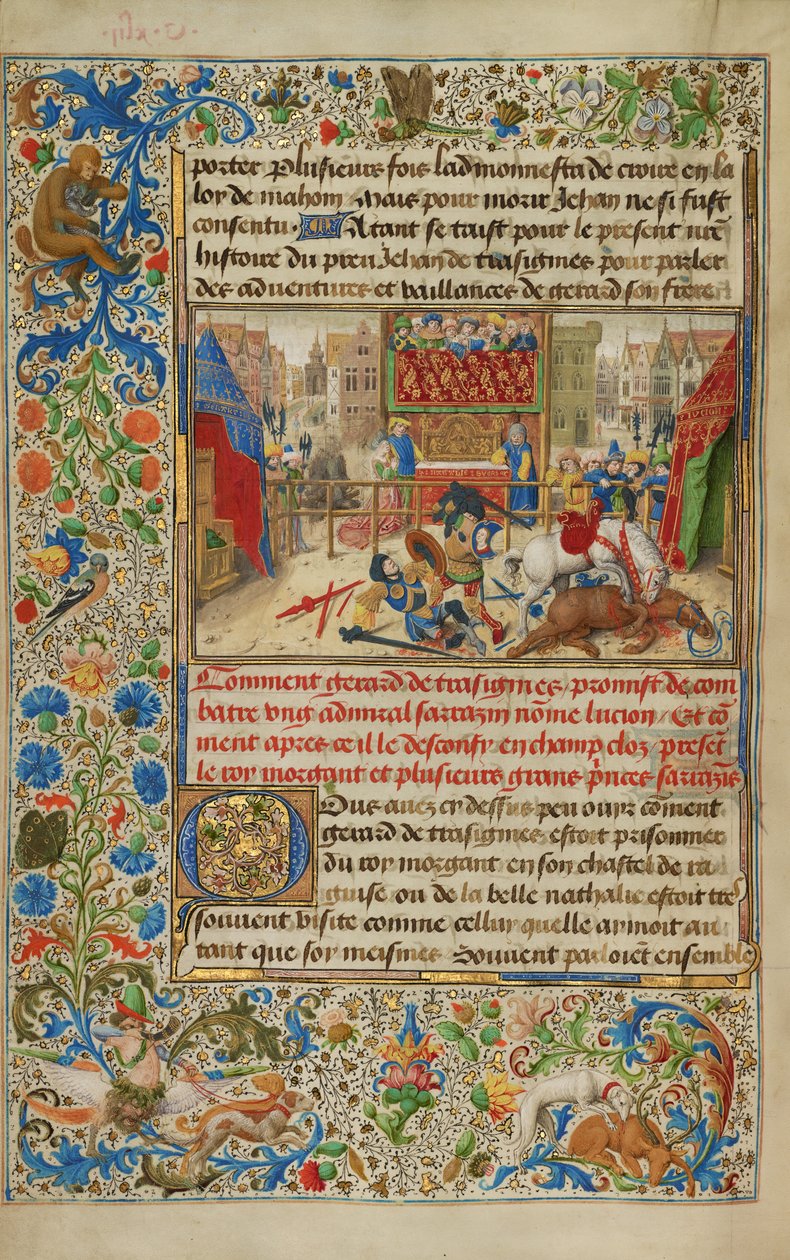 porter Plusieurs fois ladmonnesta de croire en la
loy de mahom Mais pour morir Jehan ne si fust
consentu. Atant se taist pour le present nr̃e
histoire du preu Jehan de trasignies pour parler
des aduentures et vaillances de gerard son frere
Comment gerard de trasignies / promist de com
batre vng admiral sarrazin nõme lucion / Et cõ
ment apres ce il le desconfy en champ cloz / presẽt
le roy morgant et plusieurs grans p̃nces sarrazĩs
Vous auez cy dessus peu ouyr cõment
gerard de trasignies estoit prisonnier
du roy morgant en son chastel de ra
guise ou de la belle nathalie estoit tres
souuent visite comme celluy quelle aymoit au
tant que soy meismes Souuent parloiẽt ensemble